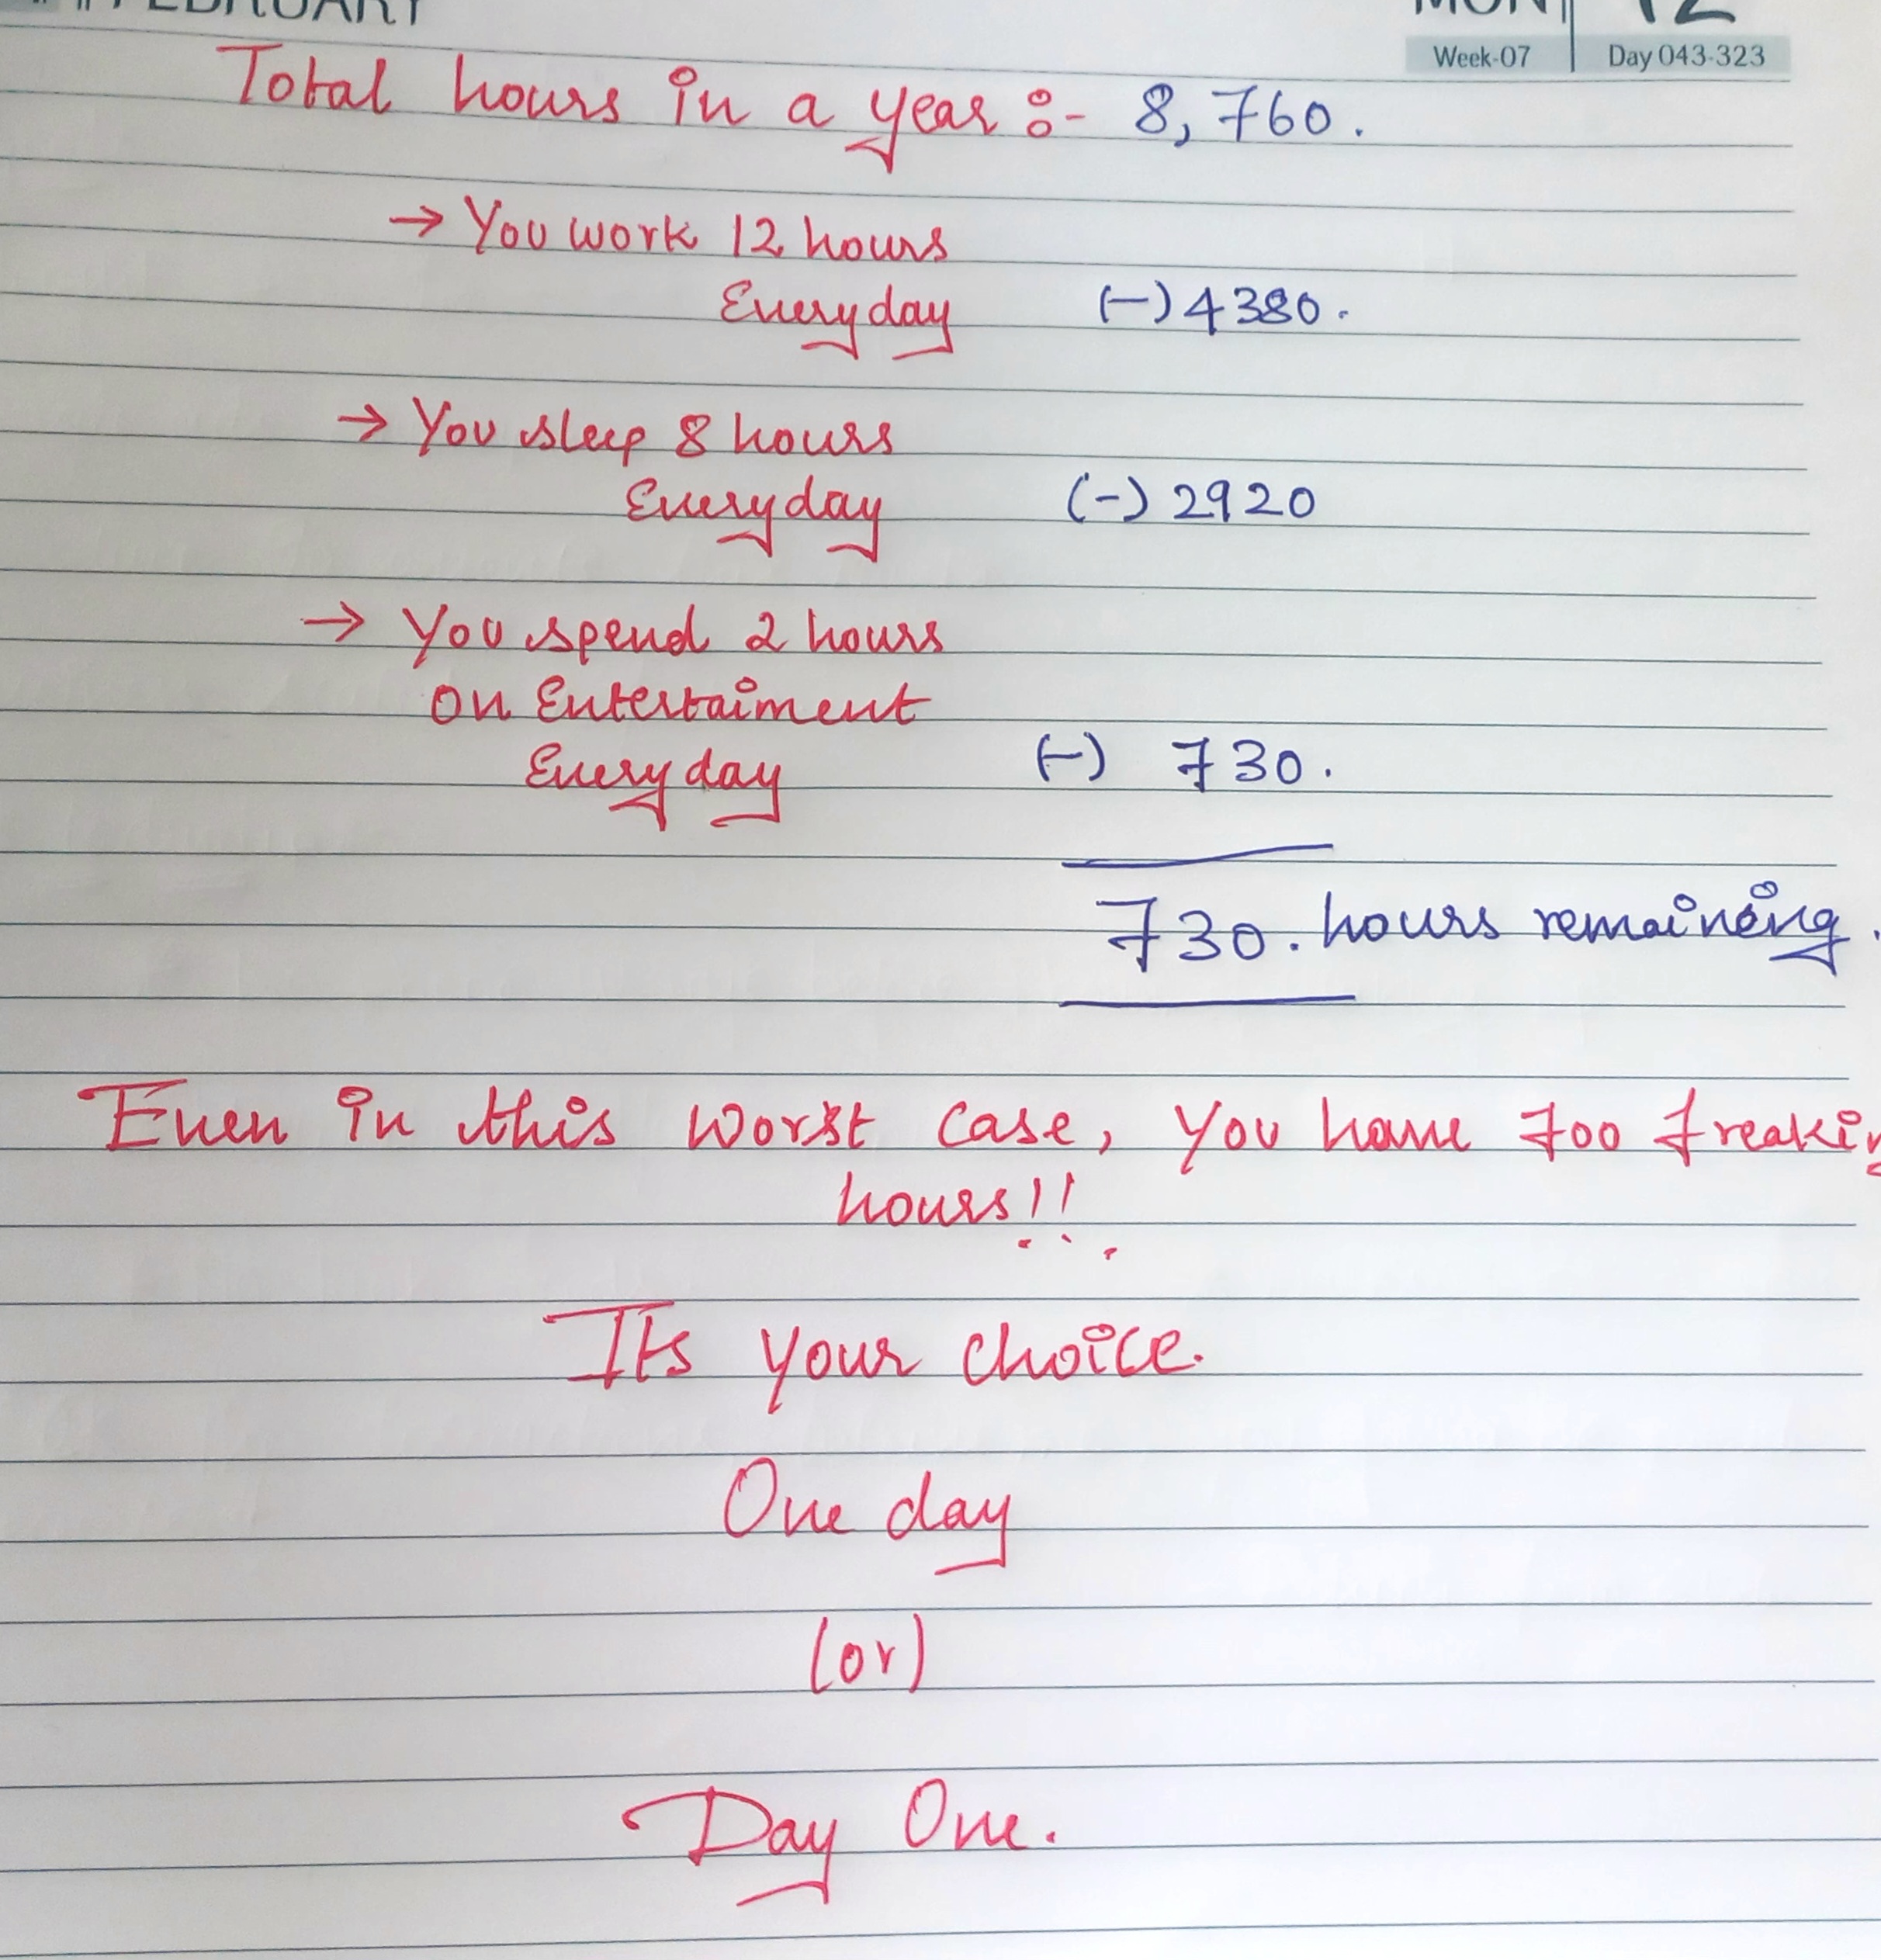 FEBRUARY MON 12
Week-07 Day 043-323
Total hours in a year :- 8,760.
→ You work 12 hours
Everyday (-) 4380.
→ You sleep 8 hours
Everyday (-) 2920
→ You spend 2 hours
on Entertaiment
Everyday (-) 730.
730. hours remaining.
Even in this worst case, you have 700 freakin
hours!!
Its your choice.
One day
(or)
Day One.